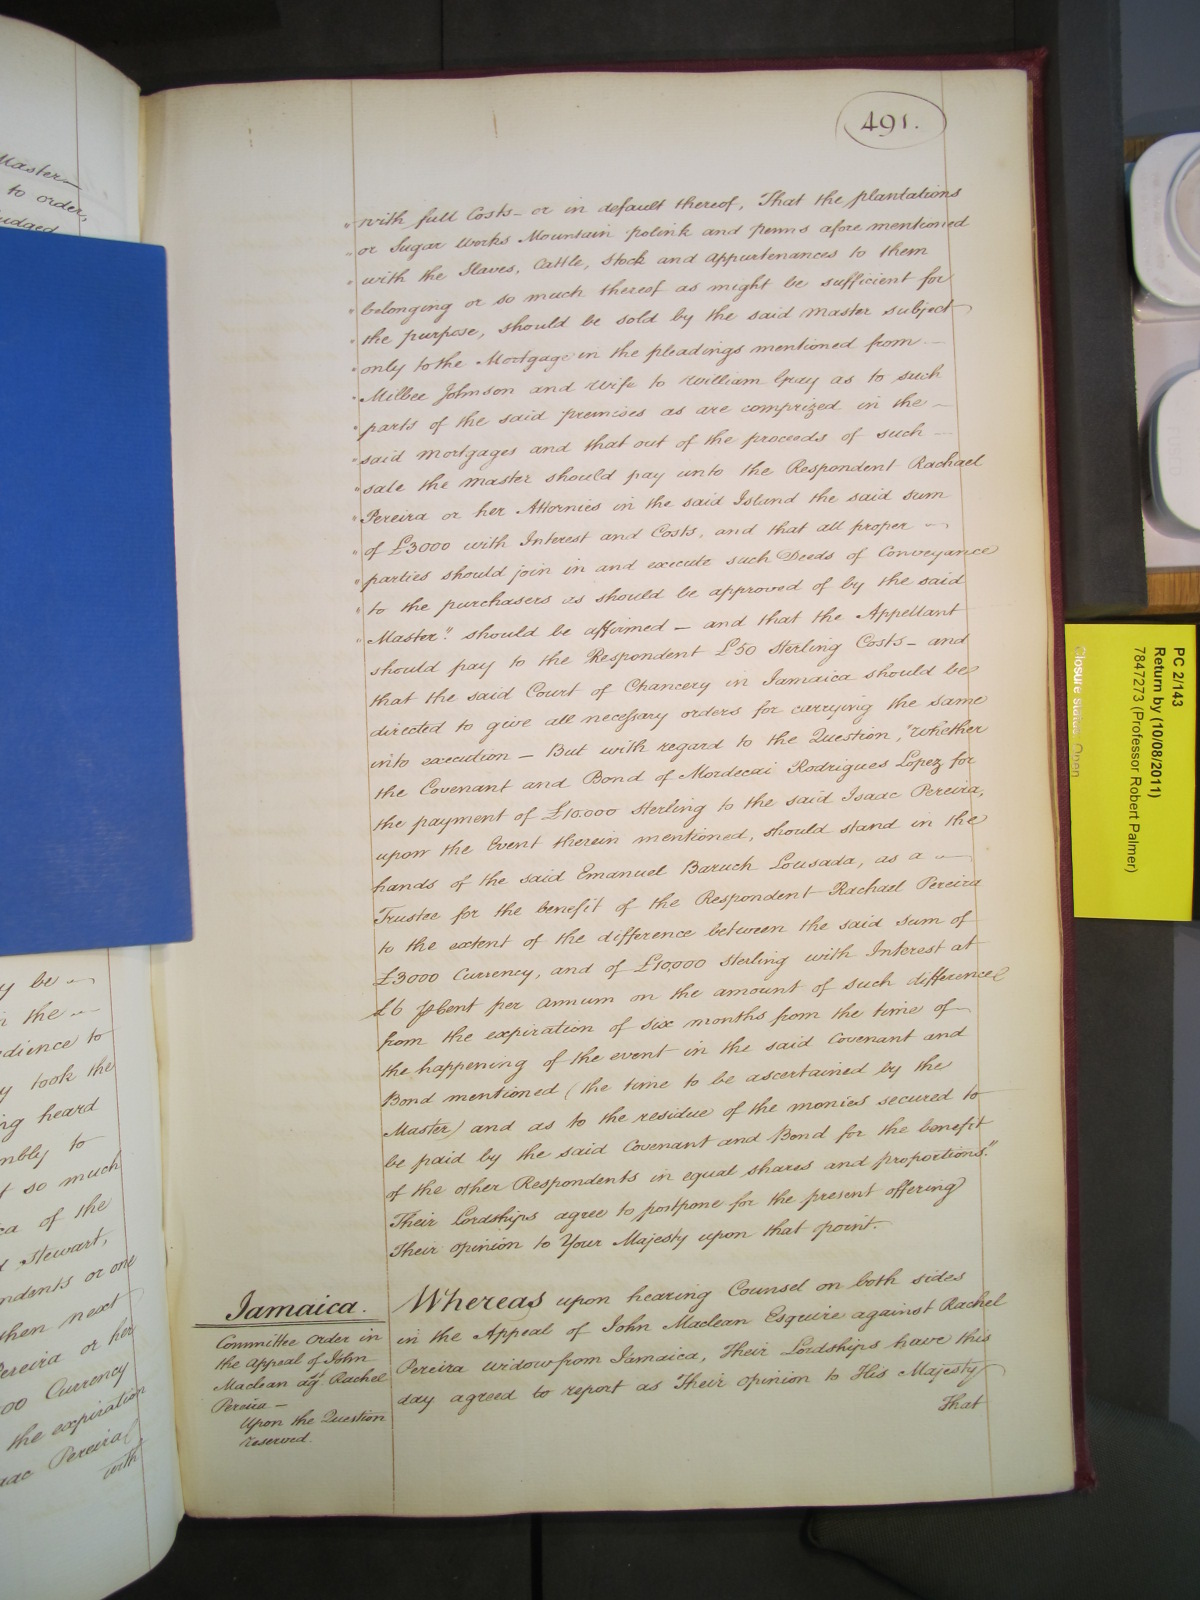 Master—
to order,
491.
" with full Costs – or in default thereof, That the plantations
" or Sugar Works Mountain polink and penns afore mentioned
" with the Slaves, Cattle, Stock and appurtenances to them
" belonging or so much thereof as might be sufficient for
" the purpose, should be sold by the said Master subject
" only to the Mortgage in the pleadings mentioned from —
" Milbee Johnson and Wife to William Gray as to such
" parts of the said premises as are comprized in the —
" said mortgages and that out of the proceeds of such —
" sale the Master should pay unto the Respondent Rachael
" Pereira or her Attornies in the said Island the said sum
" of £3000 with Interest and Costs, and that all proper —
" parties should join in and execute such Deeds of Conveyance
" to the purchasers as should be approved of by the said
" Master." should be affirmed — and that the Appellant
should pay to the Respondent £50 Sterling Costs – and
that the said Court of Chancery in Jamaica should be
directed to give all necessary orders for carrying the same
into execution — But with regard to the Question, "Whether
the Covenant and Bond of Mordecai Rodrigues Lopez for
the payment of £10.000 Sterling to the said Isaac Pereira,
upon the Event therein mentioned, should stand in the
hands of the said Emanuel Baruch Lousada, as a —
Trustee for the benefit of the Respondent Rachael Pereira
to the extent of the difference between the said sum of
£3000 Currency, and of £10,000 Sterling with Interest at
£6 Pcent per annum on the amount of such difference
from the expiration of six months from the time of —
the happening of the event in the said Covenant and
Bond mentioned (the time to be ascertained by the
Master) and as to the residue of the monies secured to
be paid by the said Covenant and Bond for the benefit
of the other Respondents in equal shares and proportions."
Their Lordships agree to postpone for the present offering
Their opinion to Your Majesty upon that point.
Jamaica.
Committee Order in
the appeal of John
Maclean agt Rachel
Pereira —
Upon the Question
reserved.
Whereas upon hearing Counsel on both sides
in the Appeal of John Maclean Esquire against Rachel
Pereira widow from Jamaica, Their Lordships have this
day agreed to report as Their opinion to His Majesty
That
be —
the —
to
took the
heard
to
so much
of the
Stewart,
or one
when next
Pereira or her
Currency
the expiration
Pereira
with
PC 2/143
Return by (10/08/2011)
7847273 (Professor Robert Palmer)
Closure status: Open